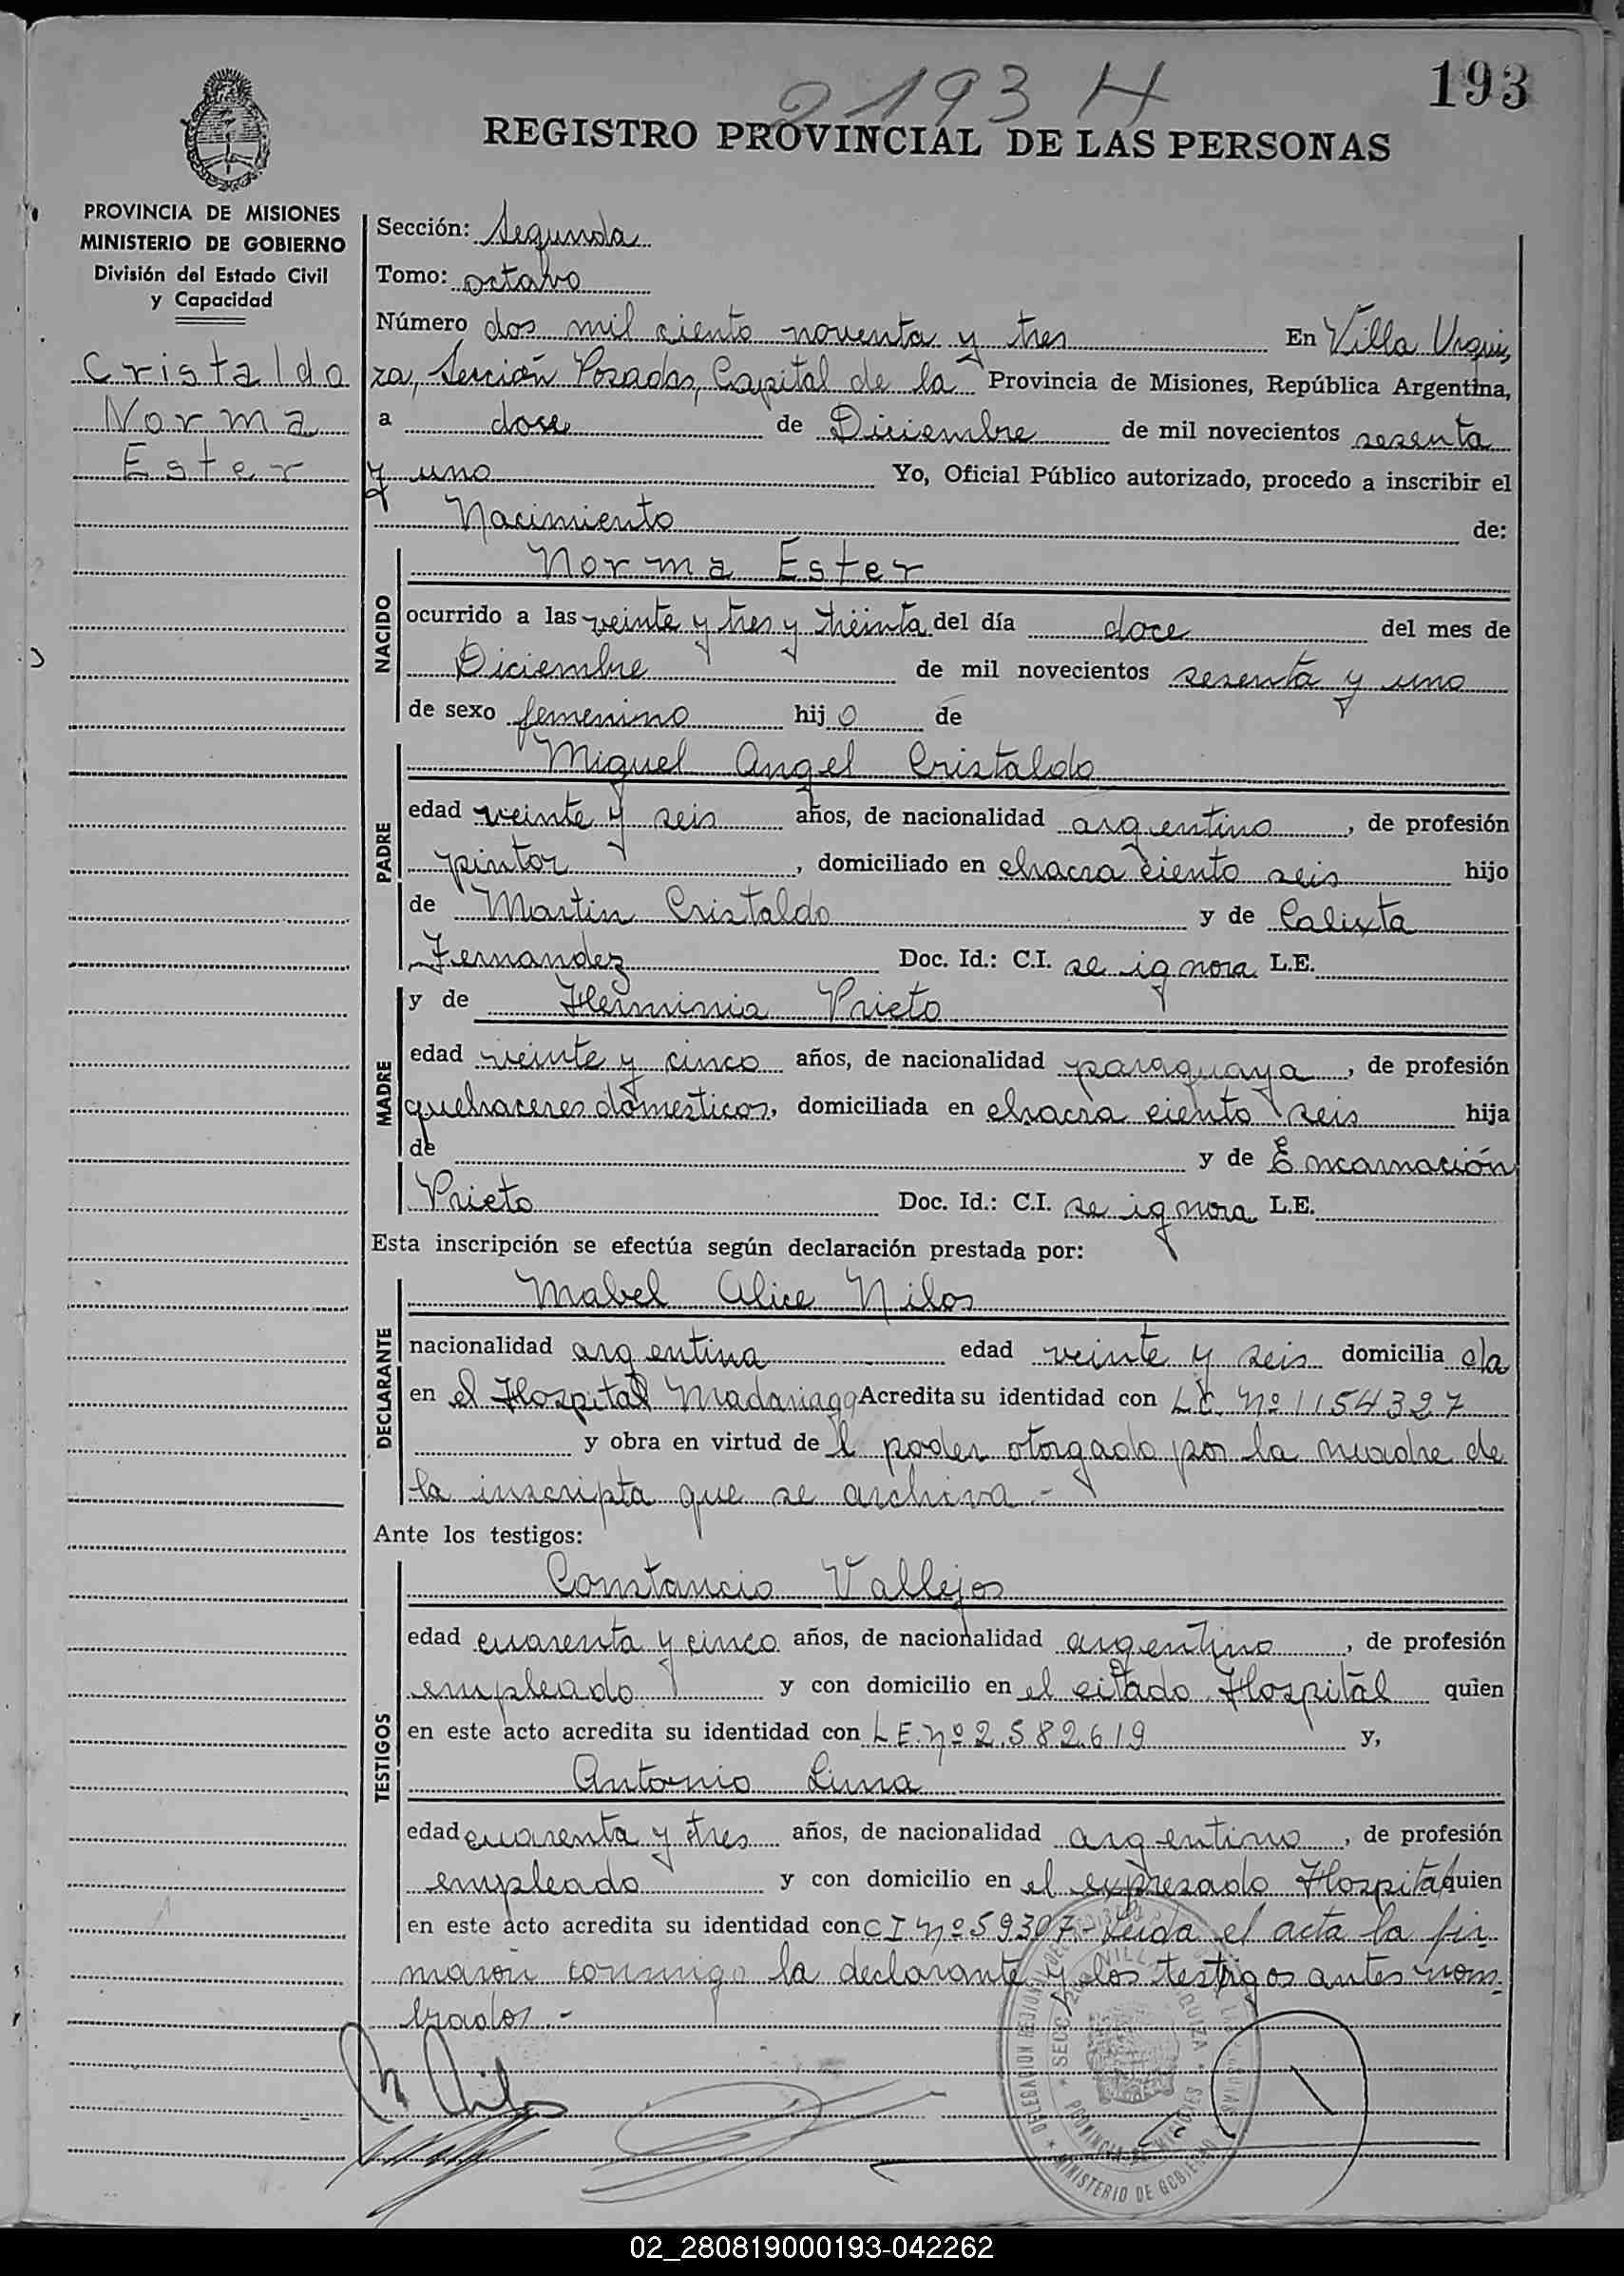 2193 H
193
REGISTRO PROVINCIAL DE LAS PERSONAS
PROVINCIA DE MISIONES
MINISTERIO DE GOBIERNO
División del Estado Civil
y Capacidad
Cristaldo
Norma
Ester
Sección: Segunda
Tomo: octavo
Número dos mil ciento noventa y tres En Villa Urqui,
za, Sección Posadas, Capital de la Provincia de Misiones, República Argentina,
a doce de Diciembre de mil novecientos sesenta
y uno Yo, Oficial Público autorizado, procedo a inscribir el
Nacimiento de:
NACIDO
Norma Ester
ocurrido a las veinte y tres y treinta del día doce del mes de
Diciembre de mil novecientos sesenta y uno
de sexo femenino hijo de
PADRE
Miguel Angel Cristaldo
edad veinte y seis años, de nacionalidad argentino, de profesión
pintor, domiciliado en chacra ciento seis hijo
de Martin Cristaldo y de Calixta
Fernandez Doc. Id.: C.I. se ignora L.E.
MADRE
y de Herminia Prieto
edad veinte y cinco años, de nacionalidad paraguaya, de profesión
quehaceres domesticos, domiciliada en chacra ciento seis hija
de y de Encarnación
Prieto Doc. Id.: C.I. se ignora L.E.
Esta inscripción se efectúa según declaración prestada por:
DECLARANTE
Mabel Alice Nilos
nacionalidad argentina edad veinte y seis domicilia da
en el Hospital Madariaga Acredita su identidad con L.C. Nº 1154327
y obra en virtud de l poder otorgado por la madre de
la inscripta que se archiva.-
Ante los testigos:
TESTIGOS
Constancio Vallejos
edad cuarenta y cinco años, de nacionalidad argentino, de profesión
empleado y con domicilio en el citado Hospital quien
en este acto acredita su identidad con L E. Nº 2.582.619 y,
Antonio Lima
edad cuarenta y tres años, de nacionalidad argentino, de profesión
empleado y con domicilio en el expresado Hospital quien
en este acto acredita su identidad con C I Nº 59307- Leida el acta la fir-
maron conmigo la declarante y los testigos antes nom-
brados.-
PROVINCIA DE MISIONES
MINISTERIO DE GOBIERNO
02_280819000193-042262